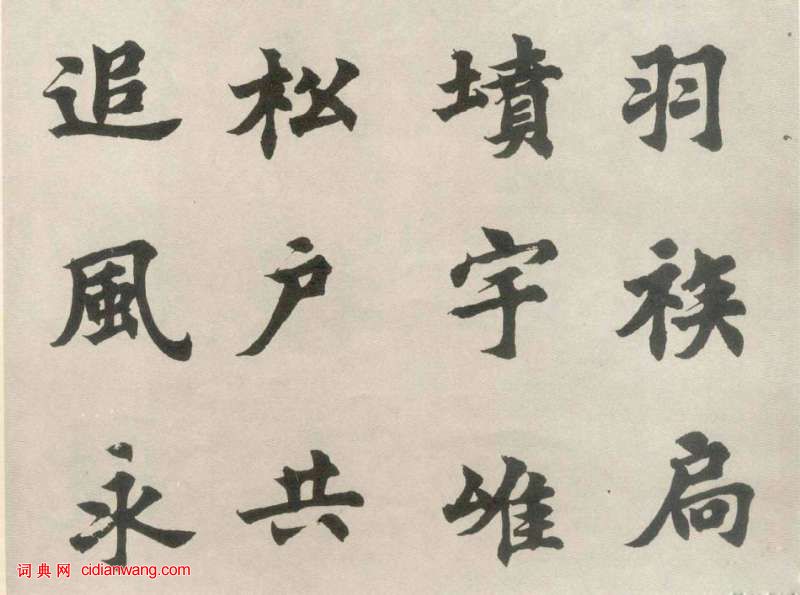 羽族扃
墳宇唯
松户共
追風永
词典网 cidianwang.com